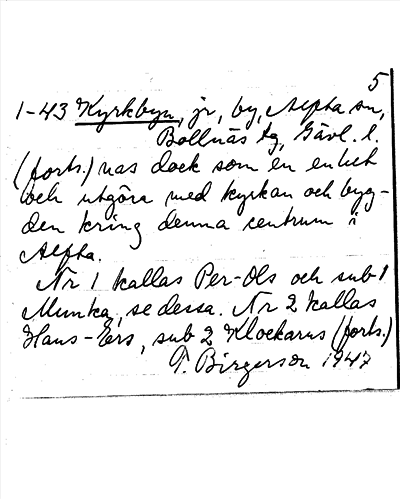 5
1-43 Kyrkbyn, jr, by, Alfta sn,
Bollnäs tg, Gävl. l.
(forts.) nas dock som en enhet
och utgöra med kyrkan och byg-
den kring denna centrum i
Alfta.
Nr 1 kallas Per-Ols och sub 1
Munka, se dessa. Nr 2 kallas
Hans-Ers, sub 2 Klockarns (forts.)
T. Birgerson 1947